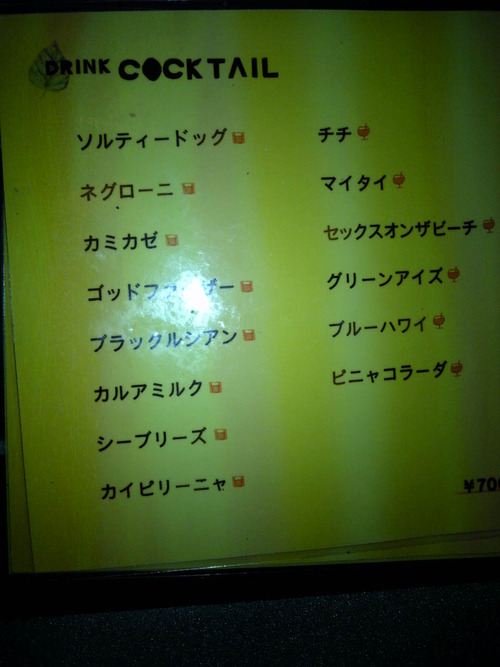 DRINK COCKTAIL
ソルティードッグ
ネグローニ
カミカゼ
ゴッドファーザー
ブラックルシアン
カルアミルク
シーブリーズ
カイピリーニャ
チチ
マイタイ
セックスオンザビーチ
グリーンアイズ
ブルーハワイ
ピニャコラーダ